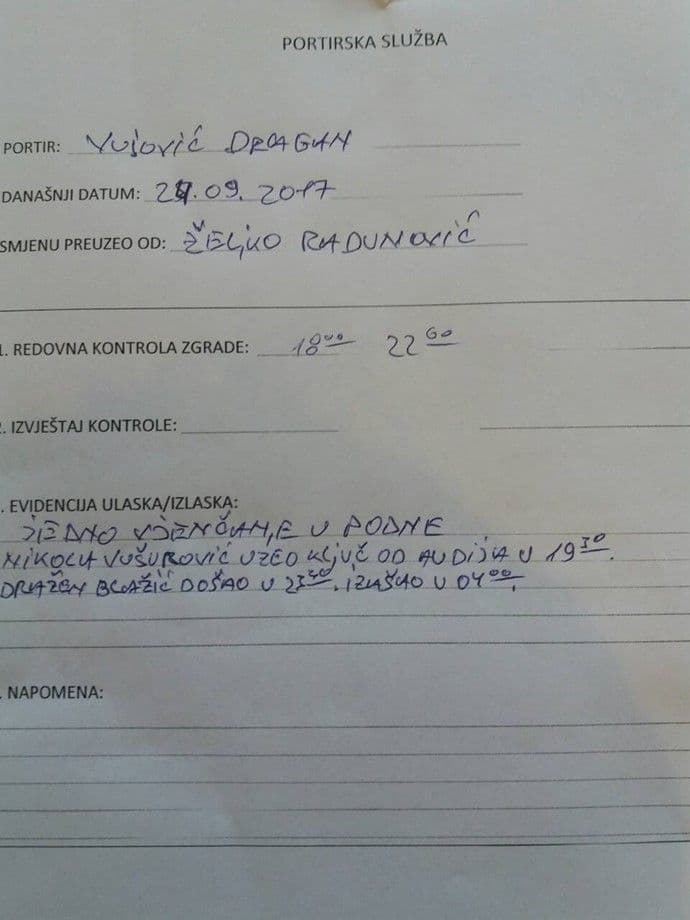 PORTIRSKA SLUŽBA
PORTIR: Vujović DRAGAN
DANAŠNJI DATUM: .09.2017
SMJENU PREUZEO OD: ŽELJKO RADUNOVIĆ
. REDOVNA KONTROLA ZGRADE: 18⁰⁰ 22
. IZVJEŠTAJ KONTROLE:
. EVIDENCIJA ULASKA/IZLASKA:
JEDNO VJENČANJE U PODNE
NIKOLA VUŠUROVIĆ UZEO KLJUČ OD AUDIJA U 19³⁰.
DRAŽEN BLAŽIĆ DOŠAO U 23. IZAŠAO U 04⁰⁰.
. NAPOMENA: